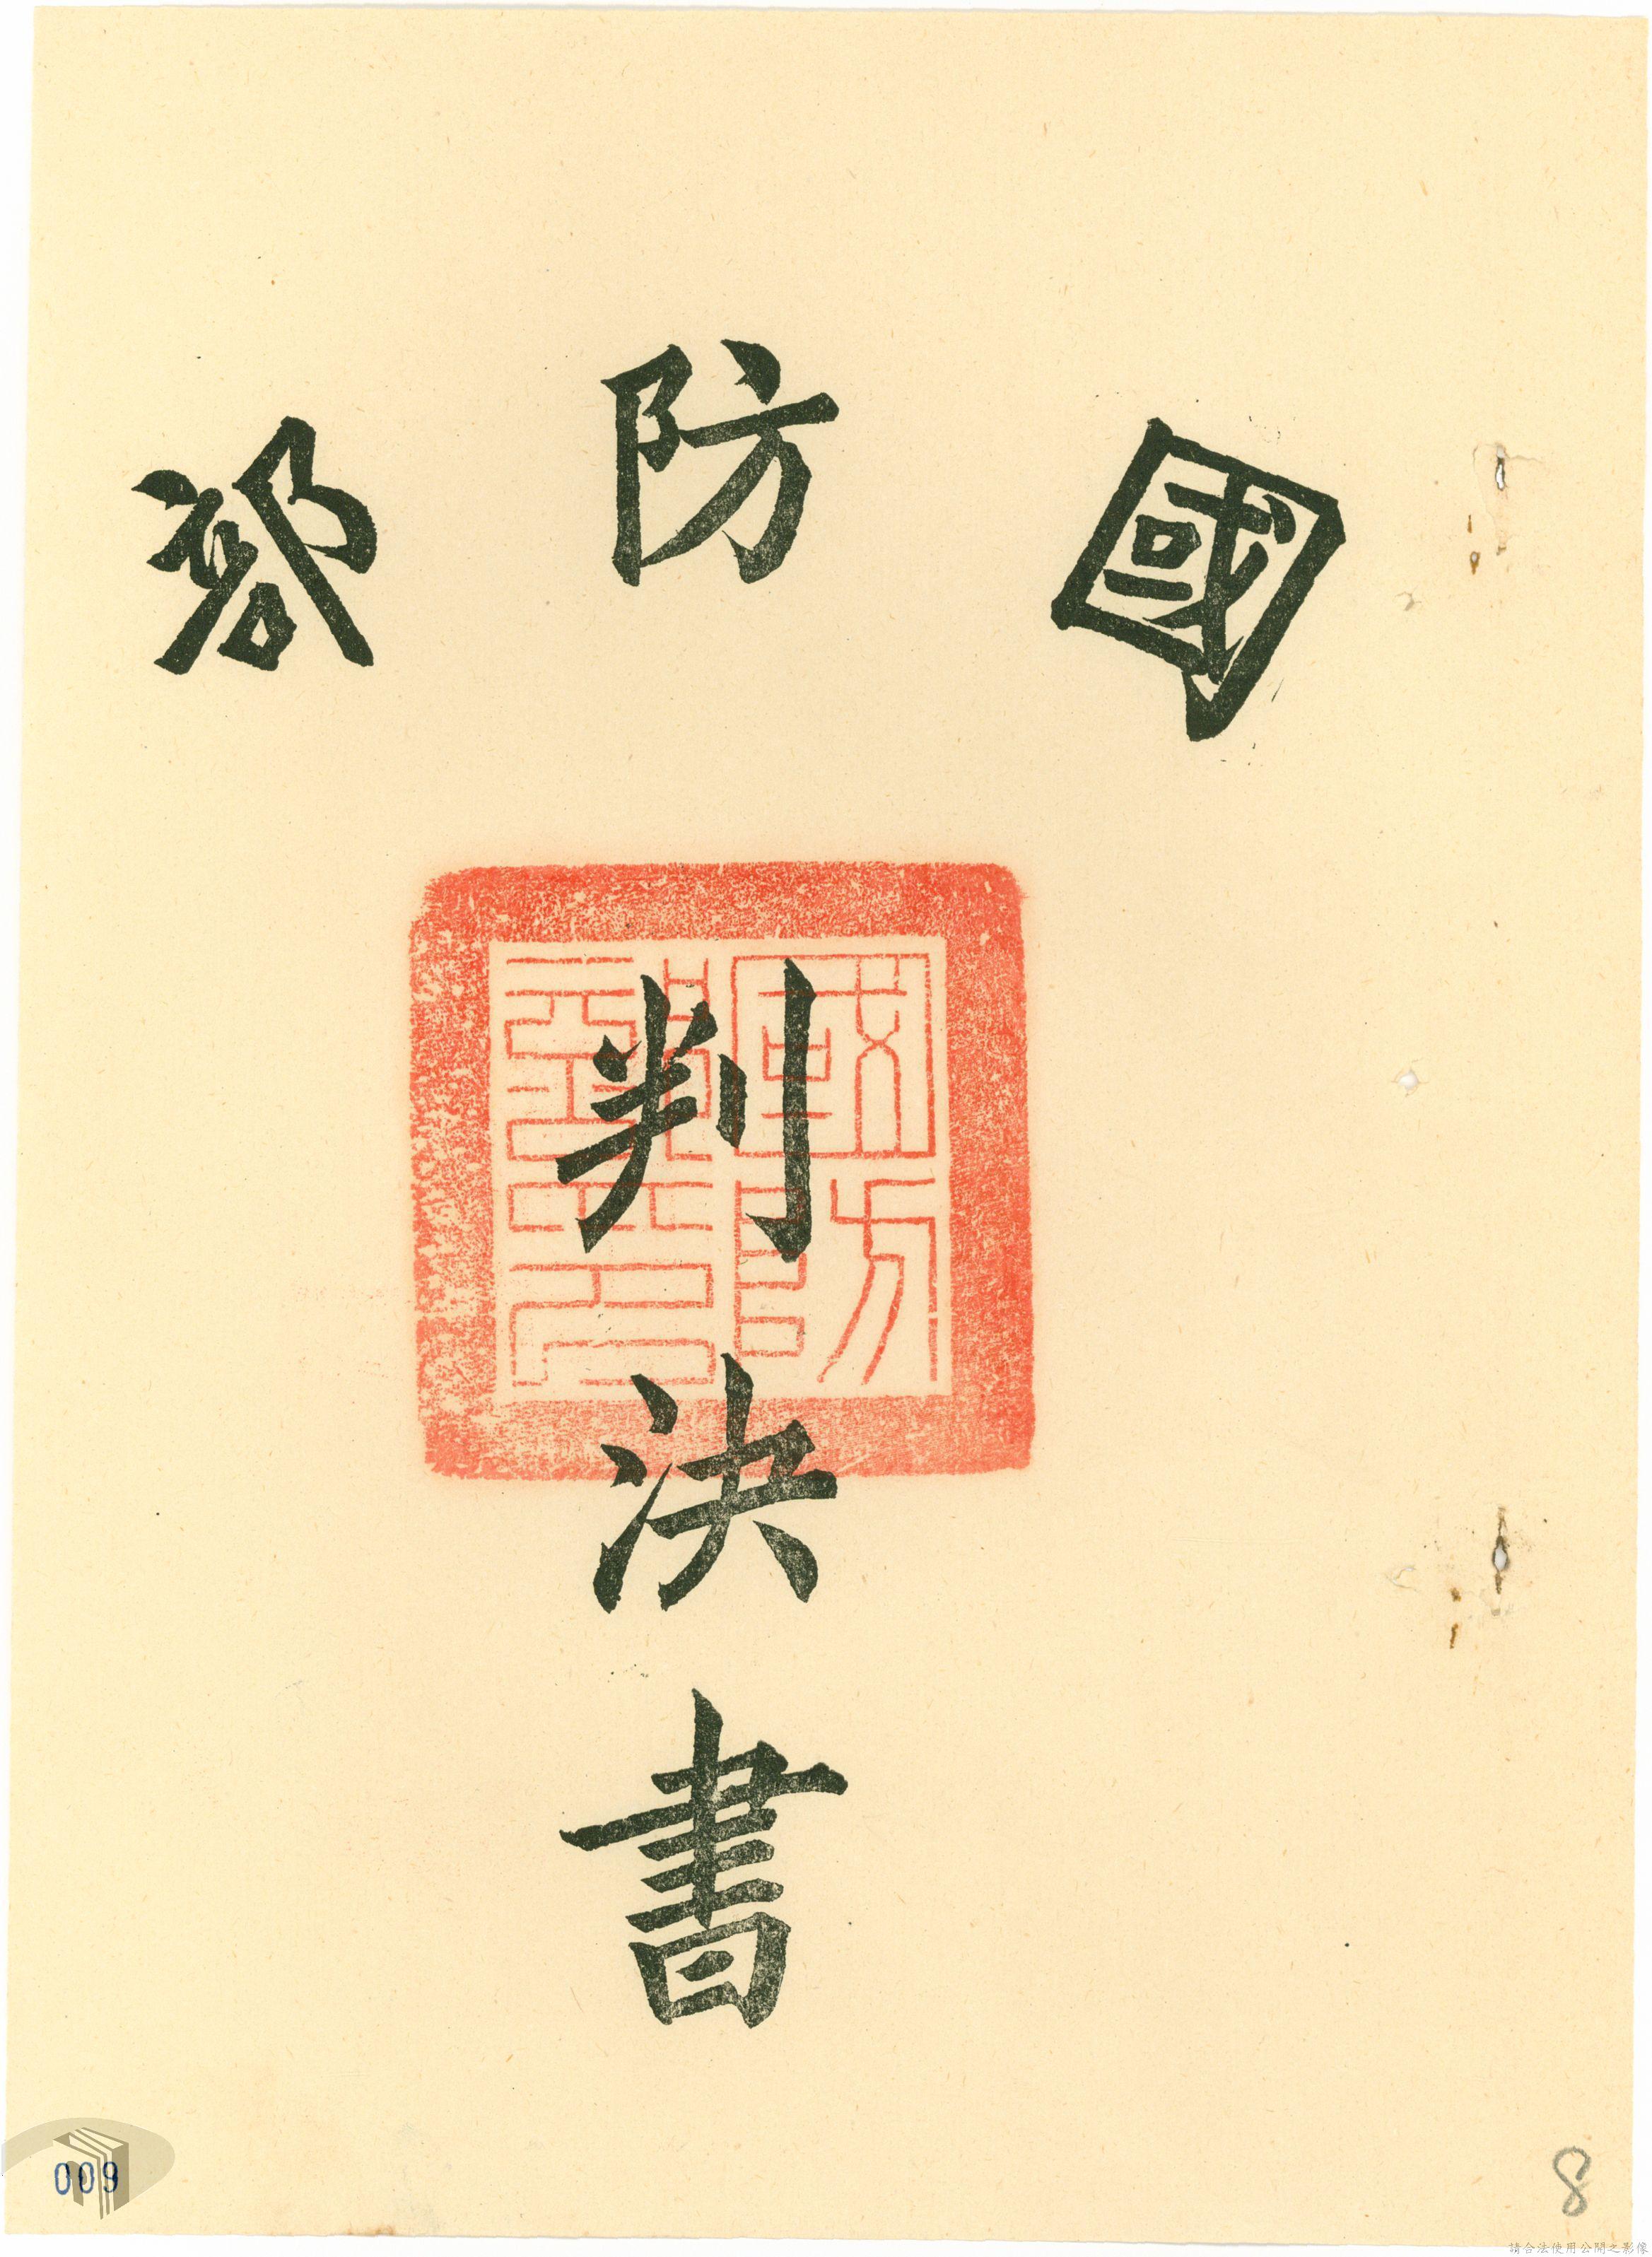 國防部
國防部印
判決書
009
8
請合法使用公開之影像